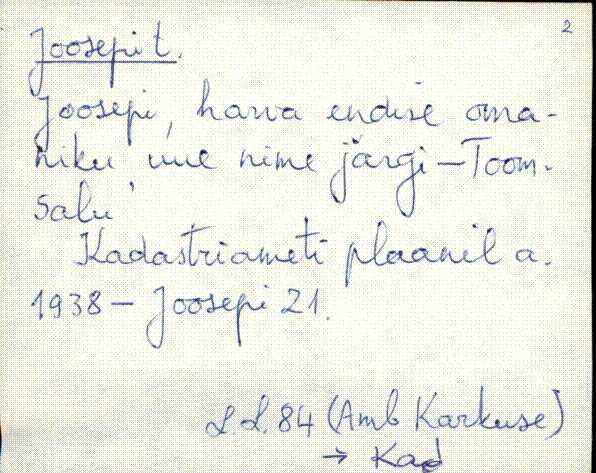 2
Joosepi t.
Joosepi, harva endise oma-
niku uue nime järgi – Toom-
salu
Kadastriameti plaanil a.
1938 – Joosepi 21.
L.L. 84 (Amb Karkuse)
→ Kad